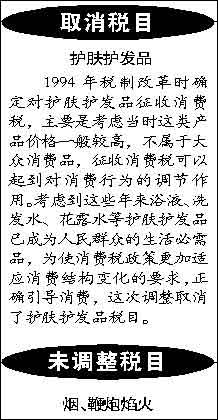 取消税目
护肤护发品
1994年税制改革时确
定对护肤护发品征收消费
税，主要是考虑当时这类产
品价格一般较高，不属于大
众消费品，征收消费税可以
起到对消费行为的调节作
用。考虑到这些年来浴液、洗
发水、花露水等护肤护发品
已成为人民群众的生活必需
品，为使消费税政策更加适
应消费结构变化的要求，正
确引导消费，这次调整取消
了护肤护发品税目。
未调整税目
烟、鞭炮焰火